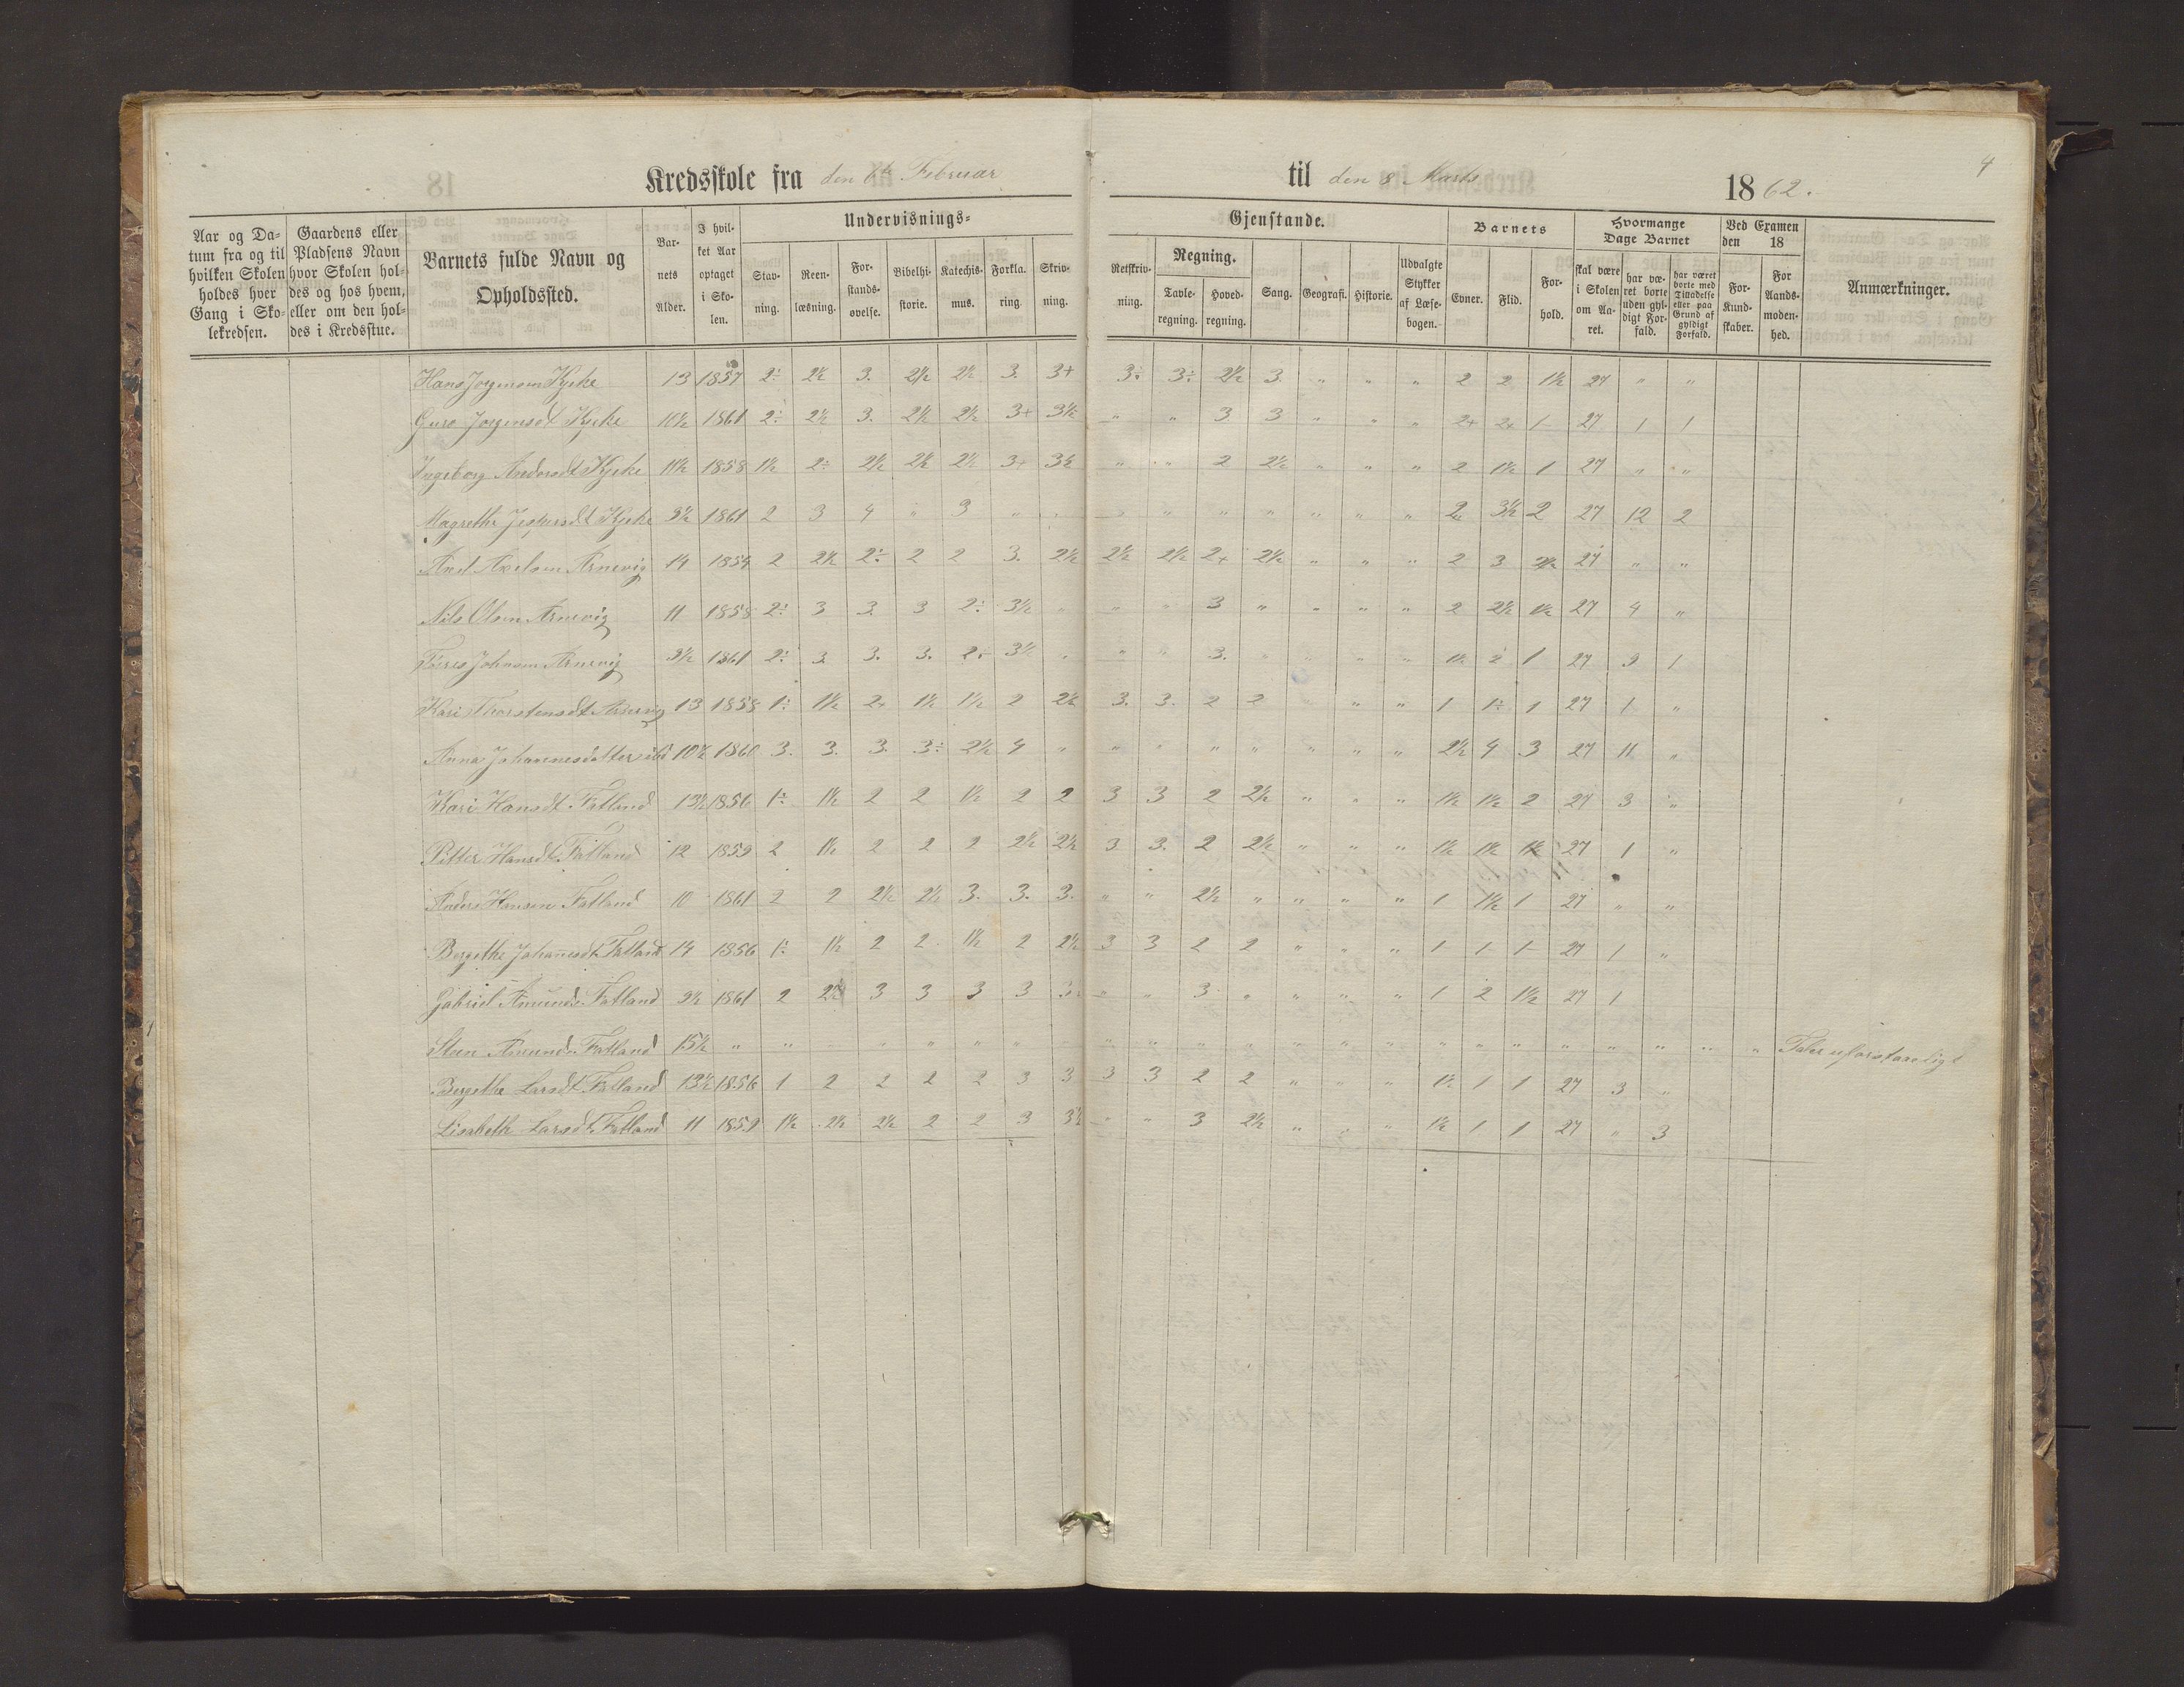 Kredsskole fra den 6te Februar til den 8 Marts 1862.
4
Aar og Datum fra og til hvilken Skolen holdes hver Gang i Skolekredsen.
Gaardens eller Pladsens Navn hvor Skolen holdes og hos hvem, eller om den holdes i Kredsstue.
Barnets fulde Navn og Opholdssted.
Barnets Alder.
I hvilket Aar optaget i Skolen.
Undervisnings= Gjenstande.
Stavning. Reenlæsning. Forstandsøvelse. Bibelhistorie. Katechismus. Forklaring. Skrivning.
Retskrivning. Regning. Tavleregning. Hovedregning. Sang. Geografi. Historie. Udvalgte Stykker af Læsebogen.
Barnets Evner. Flid. Forhold.
Hvormange Dage Barnet skal være i Skolen om Aaret. har været borte uden gyldigt Forfald. har været borte med Tilladelse eller paa Grund af gyldigt Forfald.
Ved Examen den 18 Forkundskaber. For Aandsmodenhed.
Anmærkninger.
Hans Jørgensen Kjeke 13 1857 2÷ 2½ 3. 2½ 2½ 3. 3+ 3÷ 3÷ 2½ 3 " " " 2 2 1½ 27 " "
Guro Jørgensdt Kjeke 10½ 1861 2÷ 2½ 3. 2½ 2½ 3+ 3½ " " 3 3 " " " 2+ 2+ 1 27 1 1
Ingeborg Andersdt Kjeke 11½ 1858 1½ 2÷ 2½ 2½ 2½ 3+ 3½ " " 2 2½ " " " 2 1½ 1 27 " "
Magrethe Jespersdt Kjeke 9½ 1861 2 3 4 " 3 " " " " " " " " " 2 3½ 2 27 12 2
And Axelsen Arnevig 14 1854 2 2½ 2÷ 2 2 3. 2½ 2½ 2½ 2+ 2½ " " " 2 3 2½ 27 " "
Nils Olsen Arnevig 11 1858 2÷ 3 3 3 2÷ 3½ " " " 3 " " " " 2 2½ 1½ 27 4 "
Johnsen Arnevig 9½ 1861 2÷ 3 3. 3. 2÷ 3½ " " " 3. " " " " 1½ 2 1 27 9 1
Kari Thorstensdt Arnevig 13 1858 1÷ 1½ 2+ 1½ 1½ 2 2½ 3. 3. 2 2 " " " 1 1÷ 1 27 1 "
Anna Johannesdatter ibd 10½ 1860 3. 3. 3. 3÷ 2½ 4 " " " " " " " " 2½ 4 3 27 11 "
Kari Hansdt Fatland 13½ 1856 1÷ 1½ 2 2 1½ 2 2 3 3 2 2½ " " " 1½ 1½ 2 27 3 "
Pitter Hansdt Fatland 12 1859 2 1½ 2 2 2 2½ 2½ 3 3. 2 2½ " " " 1½ 1½ 1½ 27 1 "
Anders Hansen Fatland 10 1861 2 2 2½ 2½ 3. 3. 3. " " 2½ " " " " 1 1½ 1 27 " "
Bergethe Johannesdt Fatland 14 1856 1÷ 1½ 2 2 1½ 2 2½ 3 3 2 2 " " " 1 1 1 27 1 "
Gabriel Amunds. Fatland 9½ 1861 2 2½ 3 3 3 3 3 " " 3 " " " " 1 2 1½ 27 1
Steen Amunds. Fatland 15½ " " " " " " " " " " " " " " " " " " " " " " " Taler uforstaaeligt
Bergethe Larsdt Fatland 13½ 1856 1 2 2 2 2 3 3 3 3 2 2 " " " 1½ 1 1 27 3 "
Lisabeth Larsdt Fatland 11 1859 1½ 2½ 2½ 2 2 3 3½ " " 3 2½ " " " 1½ 1 1 27 " 3